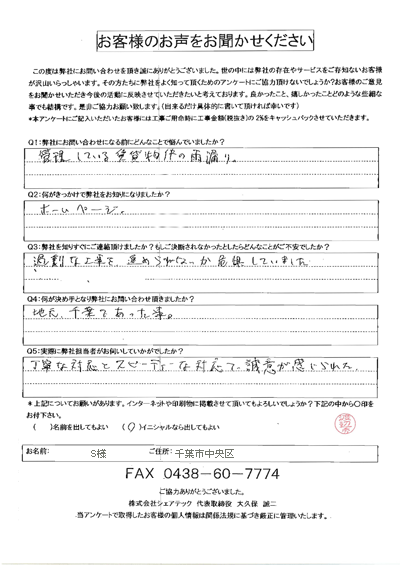 お客様のお声をお聞かせください
この度は弊社にお問い合わせを頂き誠にありがとうございました。世の中には弊社の存在やサービスをご存知ないお客様
が沢山いらっしゃいます。その方たちに弊社をよく知って頂くためのアンケートにご協力頂けないでしょうか?お客様のご意見
をお聞かせいただき今後の活動に反映させていただきたいと考えております。良かったこと、嬉しかったことどのような些細な
事でも結構です。是非ご協力お願い致します。(出来るだけ具体的に書いて頂ければ幸いです)
*本アンケートにご記入いただいたお客様には工事ご用命時に工事金額(税抜き)の2%をキャッシュバックさせていただきます。
Q1:弊社にお問い合わせになる前にどんなことで悩んでいましたか?
管理している賃貸物件の雨漏り。
Q2:何がきっかけで弊社をお知りになりましたか?
ホームページ。
Q3:弊社を知りすぐにご連絡頂けましたか?もしご決断されなかったとしたらどんなことがご不安でしたか?
過剰な工事を、進められないか危惧していました
Q4:何が決め手となり弊社にお問い合わせ頂きましたか?
地元、千葉であった事。
Q5:実際に弊社担当者がお伺いしていかがでしたか?
丁寧な対応とスピーディーな対応で、誠意が感じられた
*上記についてお願いがあります。インターネットや印刷物に掲載させて頂いてもよろしいでしょうか?下記の中から〇印を
お付下さい。
( )名前を出してもよい (〇)イニシャルなら出してもよい
お名前: S様 ご住所: 千葉市中央区
FAX 0438-60-7774
ご協力ありがとうございました。
株式会社シェアテック 代表取締役 大久保 誠二
当アンケートで取得したお客様の個人情報は関係法規に基づき厳正に管理いたします。